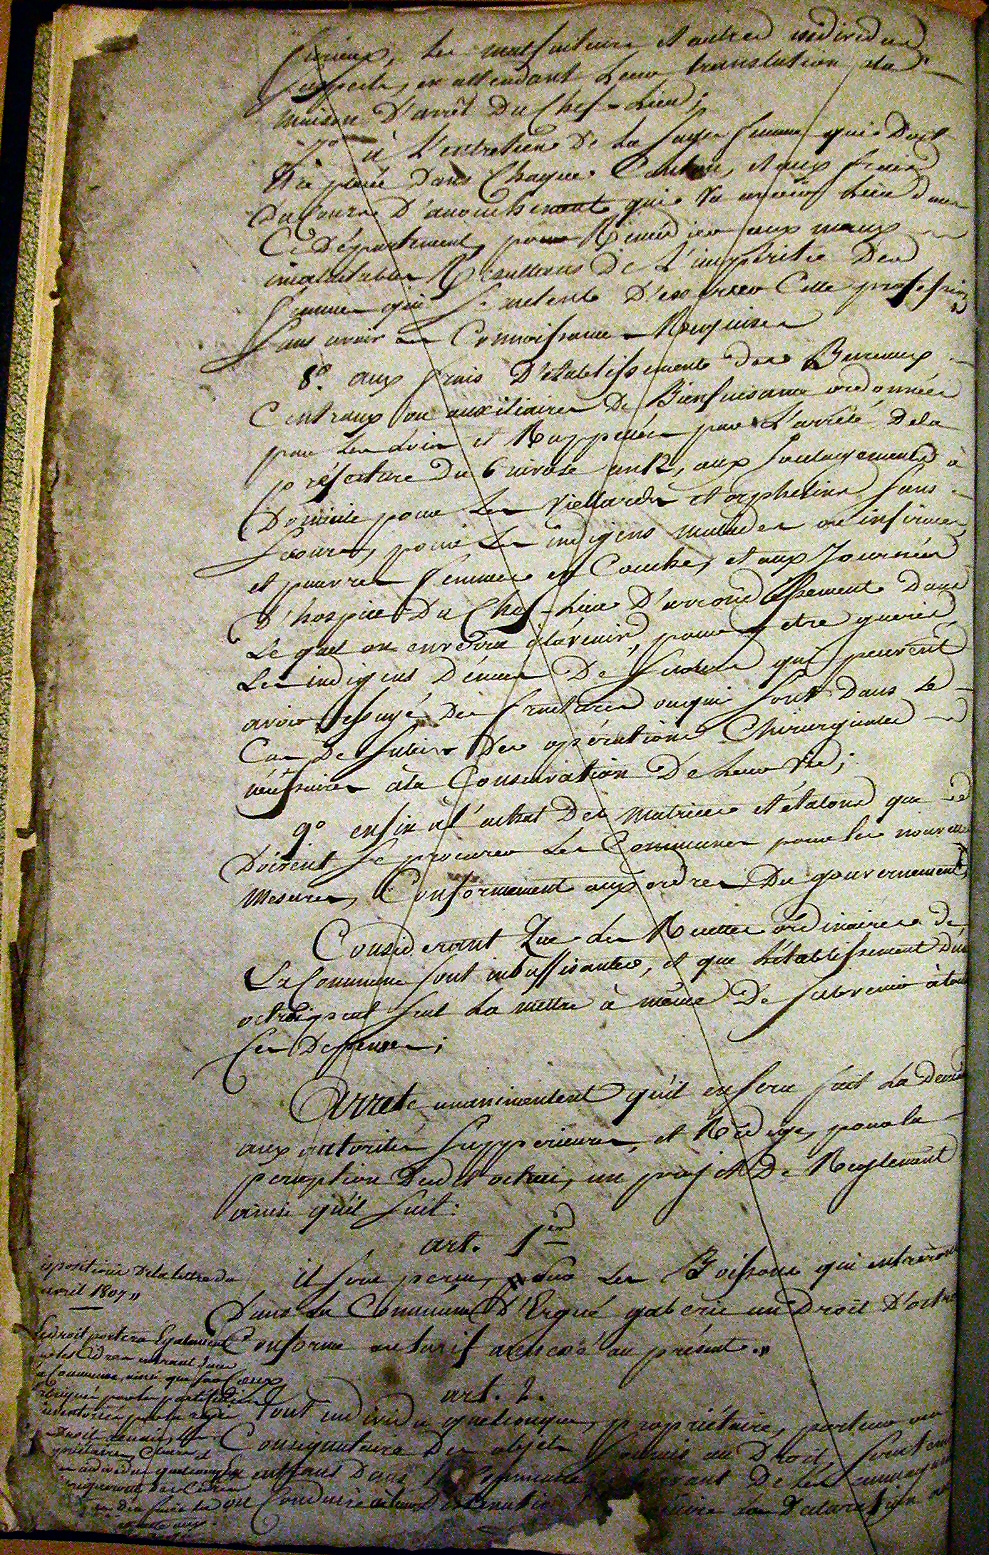 furieux, les malfaiteurs et autres individus
suspects, en attendant leur translation à la
maison d'arrêt du Chef-lieu;
7o à L'entretien De la sage femme qui Doit
être placé dans Chaque Canton, et aux frais
Du Cours D'accouchement qui va avoir lieu dans
Ce Département, pour Remedier aux maux
incalculables Résultans De L'impéritie Des
femmes qui se mêlent D'exercer Cette profession
sans avoir les Connoissances Requises
8o. aux frais D'etablissements des Bureaux
Centraux ou auxiliaires De Bienfaisance ordonnés
par les Loix et Rappelés par L'arrêté De la
préfecture du 6 nivose an 12, aux soulagements à
Domicile pour les Viellards et orphelins sans
secours, pour les indigens malades ou infirmes
et pauvres femmes en Couche, et aux Journées
D'hospice Du Chef-Lieu D'arrondissement dans
Le quel on enverra à l'avenir, pour y etre gueris,
Les indigens Dénués De secours qui peuvent
avoir essuyé Des fractures ou qui sont Dans le
Cas De subir Des opérations Chirurgicales
nécessaires à la Conservation De Leur vie;
9o enfin à l'achat Des Matrices et étalons que
Doivent se procurer Les Communes pour les nouvelles
mesures, Conformement aux ordres Du gouvernement,
Considerant Que les Recettes ordinaires de
La Commune sont insuffisantes, et que L'établissement D'un
octroi peut seul La mettre à même De subvenir à toutes
ses Dépenses;
Arrete unanimement qu'il en sera fait La demande
aux autorités suppérieures, et Rédige, pour la
perception Dud. octroi, un projet De Reglement
ainsi qu'il suit:
art. 1er
il sera perçu, sur Les Boissons qui entreront
Dans La Commune D'Ergué gaberic un Droit D'octroi
Conforme au tarif annexé au présent.,,
art. 2.
Tout individu quelconque, propriétaire, porteur ou
Consignataire Des objets soumis au Droit, sera tenu
En entrant Dans la Commune avant De les emmagasiner
ou Conduire à leur Destination faire sa Declaration
ispositions De la lettre du
avril 1807,,
Le droit portera Egalement
sur les cidres entrant dans
la Commune, ainsi que sur Ceux